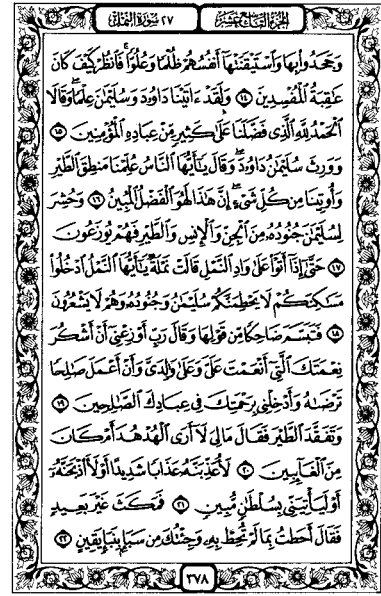 الجزء التاسع عشر ٢٧ سورة النمل
وَجَحَدُوا۟ بِهَا وَٱسْتَيْقَنَتْهَآ أَنفُسُهُمْ ظُلْمًا وَعُلُوًّا ۚ فَٱنظُرْ كَيْفَ كَانَ
عَـٰقِبَةُ ٱلْمُفْسِدِينَ ١٤ وَلَقَدْ ءَاتَيْنَا دَاوُۥدَ وَسُلَيْمَـٰنَ عِلْمًا ۖ وَقَالَا
ٱلْحَمْدُ لِلَّهِ ٱلَّذِى فَضَّلَنَا عَلَىٰ كَثِيرٍ مِّنْ عِبَادِهِ ٱلْمُؤْمِنِينَ ١٥
وَوَرِثَ سُلَيْمَـٰنُ دَاوُۥدَ ۖ وَقَالَ يَـٰٓأَيُّهَا ٱلنَّاسُ عُلِّمْنَا مَنطِقَ ٱلطَّيْرِ
وَأُوتِينَا مِن كُلِّ شَىْءٍ ۖ إِنَّ هَـٰذَا لَهُوَ ٱلْفَضْلُ ٱلْمُبِينُ ١٦ وَحُشِرَ
لِسُلَيْمَـٰنَ جُنُودُهُۥ مِنَ ٱلْجِنِّ وَٱلْإِنسِ وَٱلطَّيْرِ فَهُمْ يُوزَعُونَ
١٧ حَتَّىٰٓ إِذَآ أَتَوْا۟ عَلَىٰ وَادِ ٱلنَّمْلِ قَالَتْ نَمْلَةٌ يَـٰٓأَيُّهَا ٱلنَّمْلُ ٱدْخُلُوا۟
مَسَـٰكِنَكُمْ لَا يَحْطِمَنَّكُمْ سُلَيْمَـٰنُ وَجُنُودُهُۥ وَهُمْ لَا يَشْعُرُونَ
١٨ فَتَبَسَّمَ ضَاحِكًا مِّن قَوْلِهَا وَقَالَ رَبِّ أَوْزِعْنِىٓ أَنْ أَشْكُرَ
نِعْمَتَكَ ٱلَّتِىٓ أَنْعَمْتَ عَلَىَّ وَعَلَىٰ وَٰلِدَىَّ وَأَنْ أَعْمَلَ صَـٰلِحًا
تَرْضَىٰهُ وَأَدْخِلْنِى بِرَحْمَتِكَ فِى عِبَادِكَ ٱلصَّـٰلِحِينَ ١٩
وَتَفَقَّدَ ٱلطَّيْرَ فَقَالَ مَا لِىَ لَآ أَرَى ٱلْهُدْهُدَ أَمْ كَانَ
مِنَ ٱلْغَآئِبِينَ ٢٠ لَأُعَذِّبَنَّهُۥ عَذَابًا شَدِيدًا أَوْ لَأَا۟ذْبَحَنَّهُۥٓ
أَوْ لَيَأْتِيَنِّى بِسُلْطَـٰنٍ مُّبِينٍ ٢١ فَمَكَثَ غَيْرَ بَعِيدٍ
فَقَالَ أَحَطتُ بِمَا لَمْ تُحِطْ بِهِۦ وَجِئْتُكَ مِن سَبَإٍۭ بِنَبَإٍ يَقِينٍ ٢٢
٣٧٨